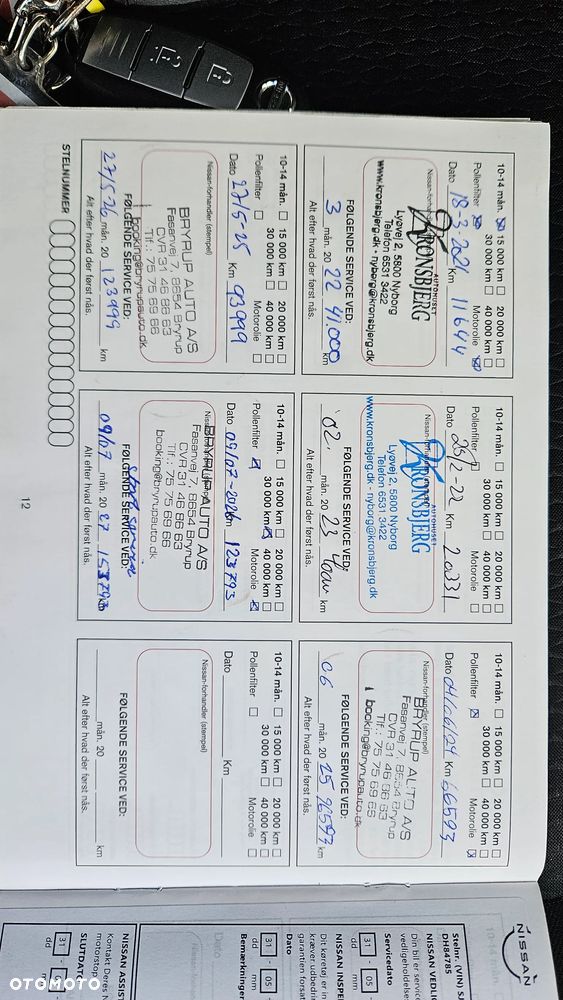 10-14 mån. 15 000 km 20 000 km
30 000 km 40 000 km
Pollenfilter Motorolie
Dato 18-3-2021 Km 11644
Nissan-forhandler (stempel)
AUTOHUSET
KRONSBJERG
Lyøvej 2, 5800 Nyborg
Telefon 6531 3422
www.kronsbjerg.dk - nyborg@kronsbjerg.dk
FØLGENDE SERVICE VED:
3 mån. 20 22 41.000 km
Alt efter hvad der først nås.
10-14 mån. 15 000 km 20 000 km
30 000 km 40 000 km
Pollenfilter Motorolie
Dato 25/2-22 Km 20331
AUTOHUSET
KRONSBJERG
Lyøvej 2, 5800 Nyborg
Telefon 6531 3422
www.kronsbjerg.dk - nyborg@kronsbjerg.dk
FØLGENDE SERVICE VED:
02. mån. 20 23 km
Alt efter hvad der først nås.
10-14 mån. 15 000 km 20 000 km
30 000 km 40 000 km
Pollenfilter Motorolie
Dato 04/06/24 Km 66593
Nissan-forhandler (stempel)
BRYRUP AUTO A/S
Fasanvej 7, 8654 Bryrup
CVR 31 46 86 63
Tlf.: 75 75 69 66
booking@bryrupauto.dk
FØLGENDE SERVICE VED:
06 mån. 20 25 96593 km
Alt efter hvad der først nås.
10-14 mån. 15 000 km 20 000 km
30 000 km 40 000 km
Pollenfilter Motorolie
Dato 27/5-25 Km 93999
Nissan-forhandler (stempel)
BRYRUP AUTO A/S
Fasanvej 7, 8654 Bryrup
CVR 31 46 86 63
Tlf.: 75 75 69 66
booking@bryrupauto.dk
FØLGENDE SERVICE VED:
27/5-26 mån. 20 123999 km
Alt efter hvad der først nås.
10-14 mån. 15 000 km 20 000 km
30 000 km 40 000 km
Pollenfilter Motorolie
Dato 09/07-2026 Km 123793
BRYRUP AUTO A/S
Fasanvej 7, 8654 Bryrup
CVR 31 46 86 63
Tlf.: 75 75 69 66
booking@bryrupauto.dk
store service
FØLGENDE SERVICE VED:
09/07 mån. 20 27 153793 km
Alt efter hvad der først nås.
10-14 mån. 15 000 km 20 000 km
30 000 km 40 000 km
Pollenfilter Motorolie
Dato Km
Nissan-forhandler (stempel)
FØLGENDE SERVICE VED:
mån. 20 km
Alt efter hvad der først nås.
STELNUMMER
12
NISSAN
Stelnr. (VIN)
DH84785
NISSAN VEDLIG
Din bil er servic
vedligeholdelses
Servicedato
31 - 05
dd mm
NISSAN INSPE
Dit køretøj er in
kræver udbedrin
garantien forsat
Dato
31 - 05
dd mm
Bemærkninger
NISSAN ASSIS
Kontakt Deres N
motorstop
SLUTDATO
31 - 05
dd mm
OTOMOTO